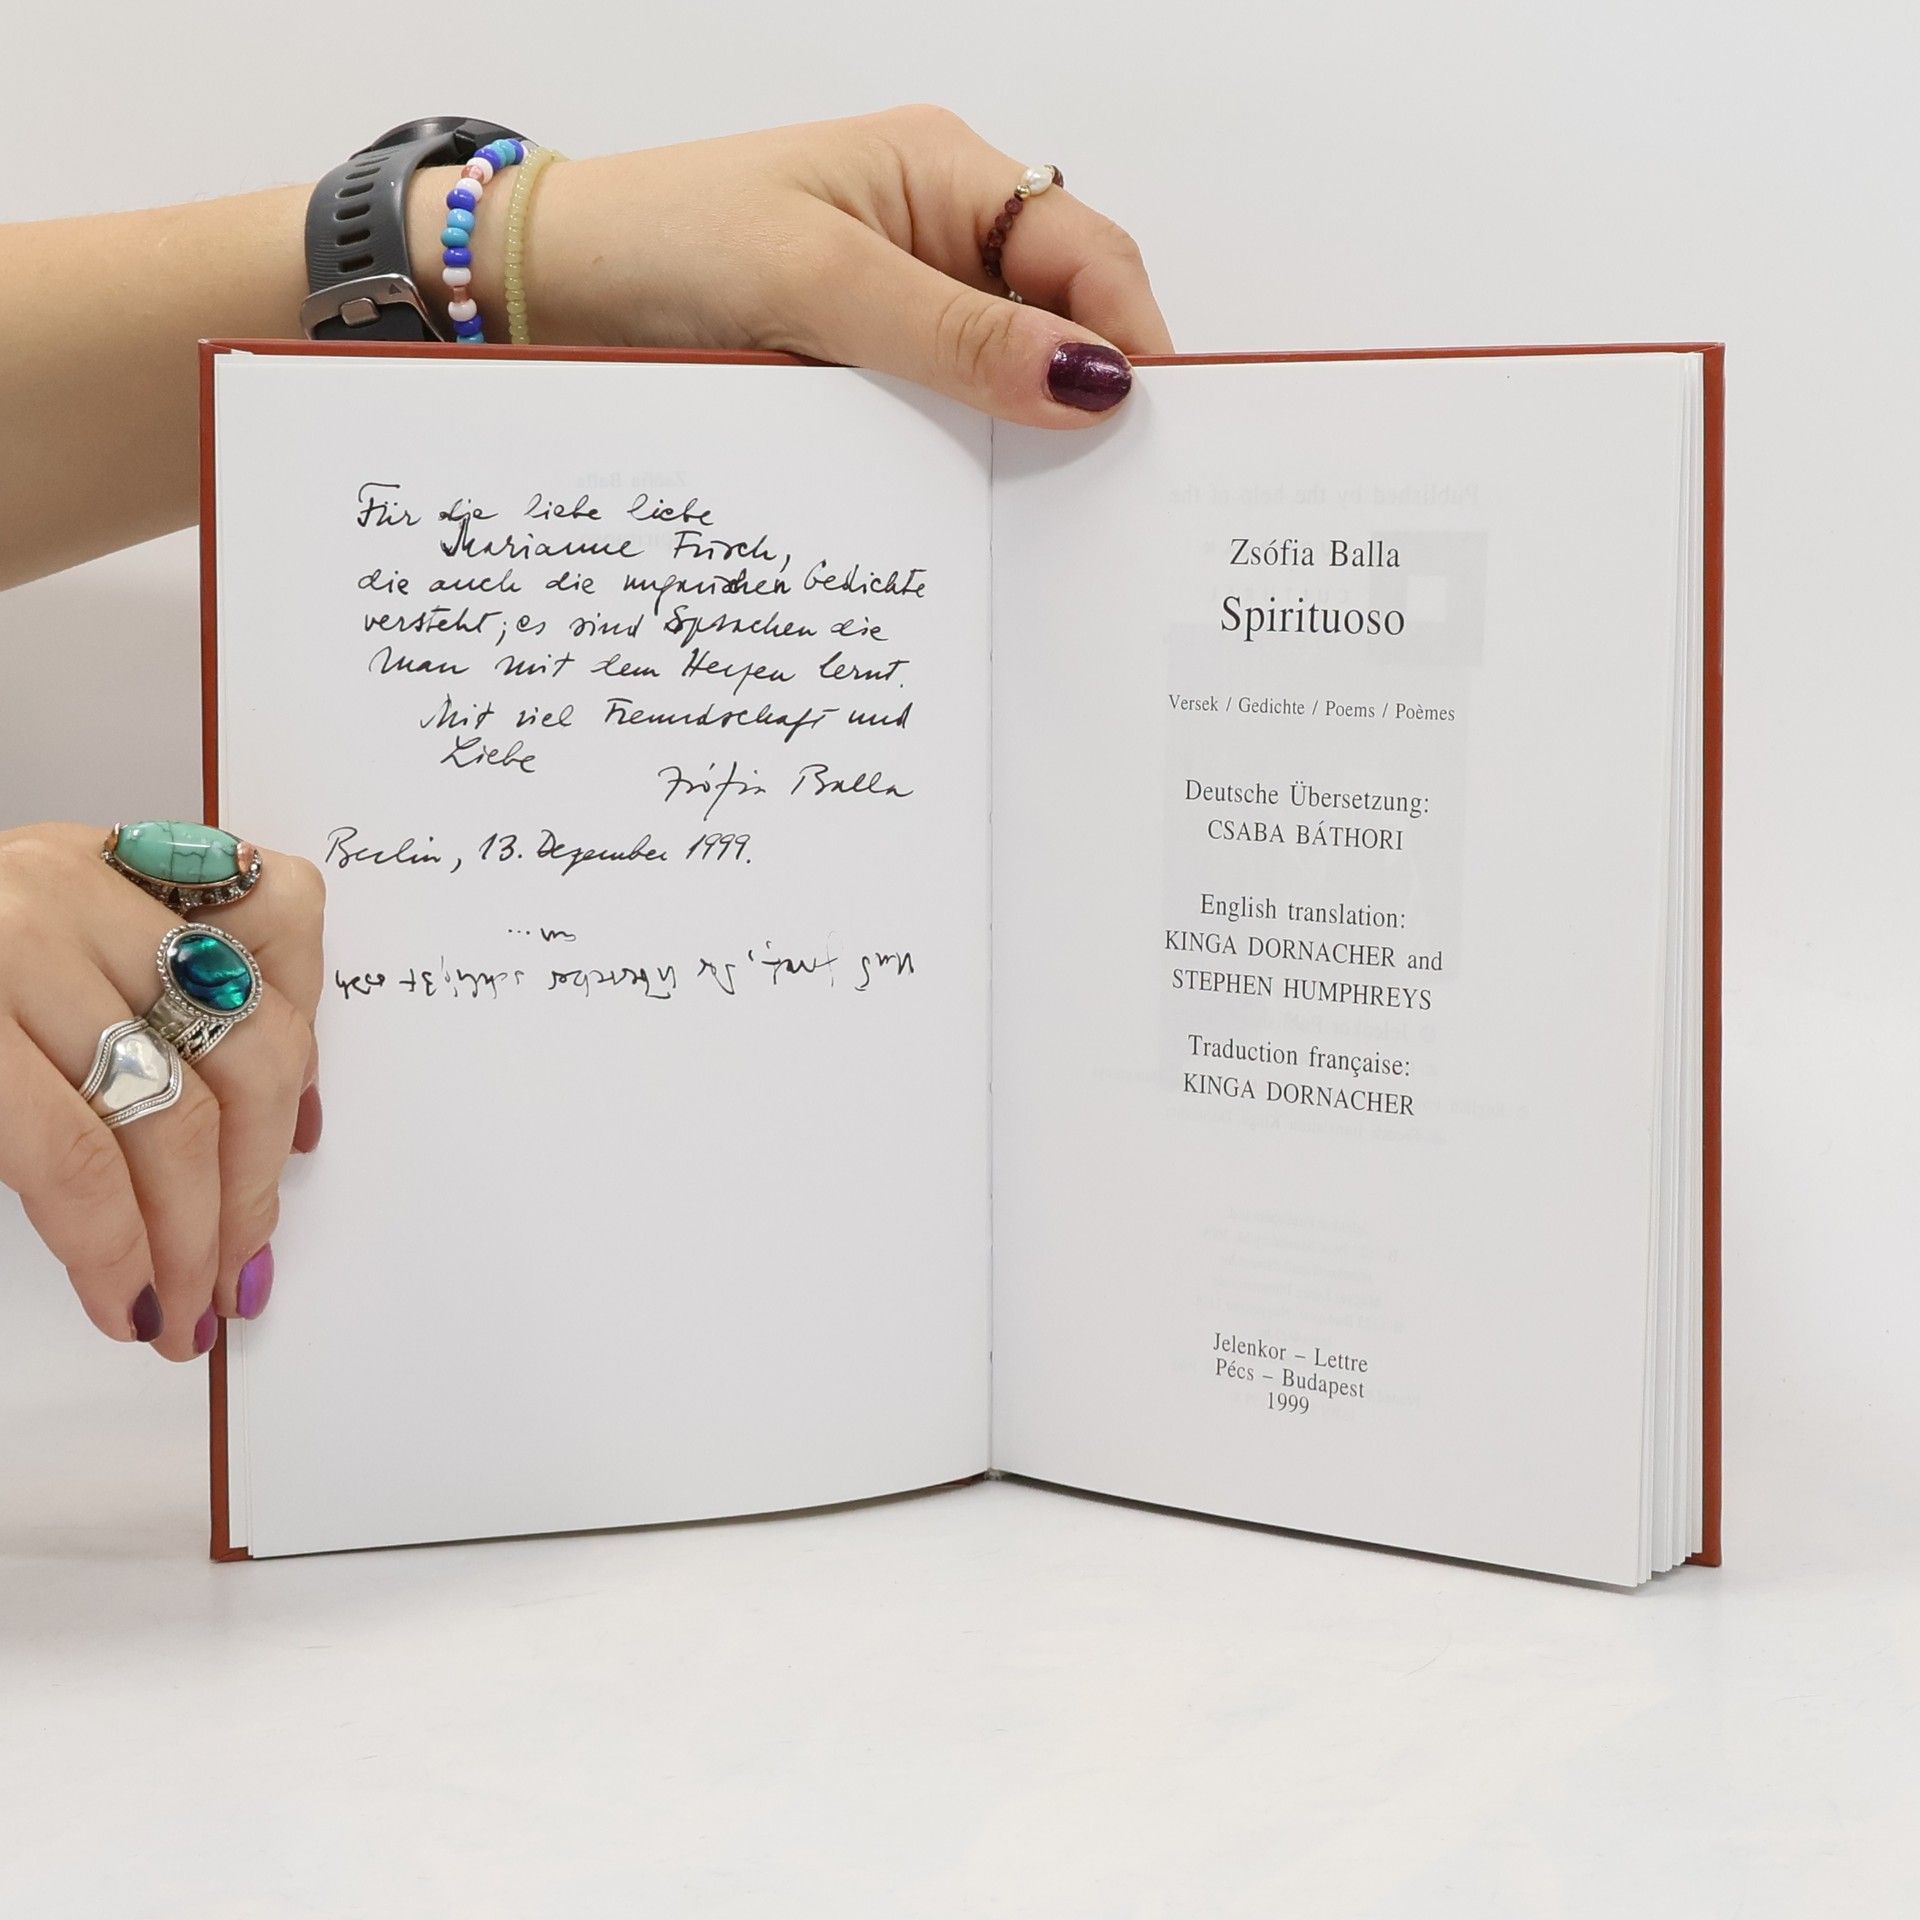 Für die liebe liebe
Marianne Frisch,
die auch die ungarischen Gedichte
versteht; es sind Sprachen die
man mit dem Herzen lernt.
Mit viel Freundschaft und
Liebe
Zsófia Balla
Berlin, 13. Dezember 1999.
Und der schließt sich
an...
Zsófia Balla
Spirituoso
Versek / Gedichte / Poems / Poèmes
Deutsche Übersetzung:
CSABA BÁTHORI
English translation:
KINGA DORNACHER and
STEPHEN HUMPHREYS
Traduction française:
KINGA DORNACHER
Jelenkor – Lettre
Pécs – Budapest
1999